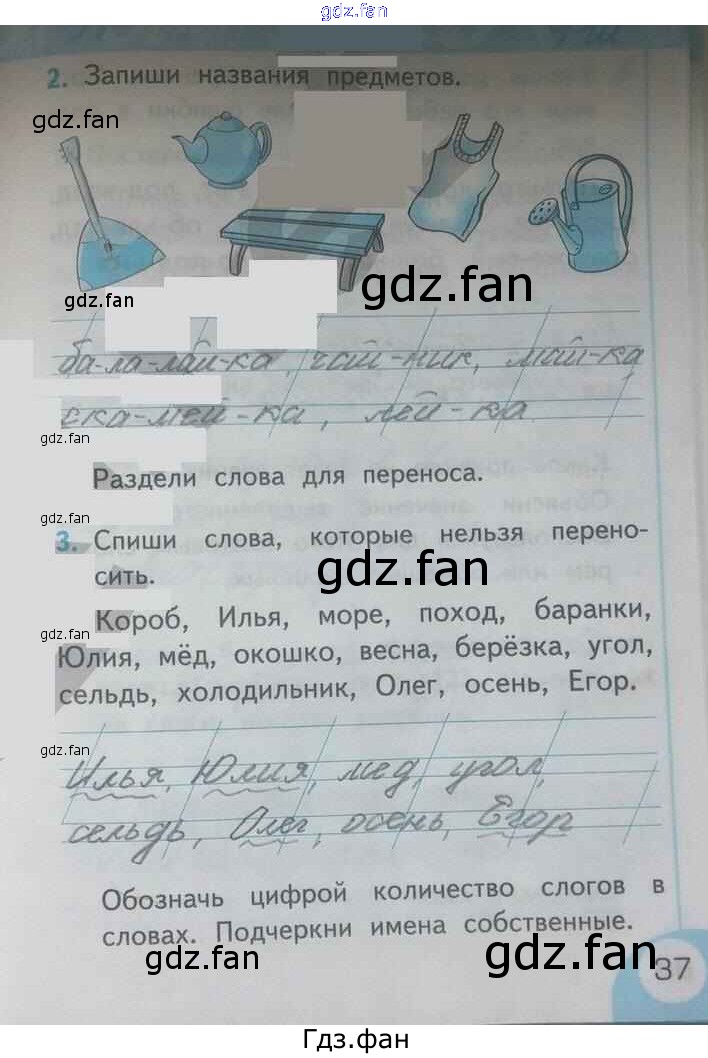 gdz.fan
2. Запиши названия предметов.
gdz.fan
gdz.fan
gdz.fan
gdz.fan
gdz.fan
ба-ла-лай-ка, чай-ник, май-ка
ска-мей-ка, лей-ка
gdz.fan
Раздели слова для переноса.
gdz.fan
3. Спиши слова, которые нельзя перено-
сить.
gdz.fan
Короб, Илья, море, поход, баранки,
gdz.fan
Юлия, мёд, окошко, весна, берёзка, угол,
сельдь, холодильник, Олег, осень, Егор.
gdz.fan
Илья, Юлия, мед, угол,
сельдь, Олег, осень, Егор
Обозначь цифрой количество слогов в
словах. Подчеркни имена собственные.
gdz.fan
gdz.fan
37
Гдз.фан